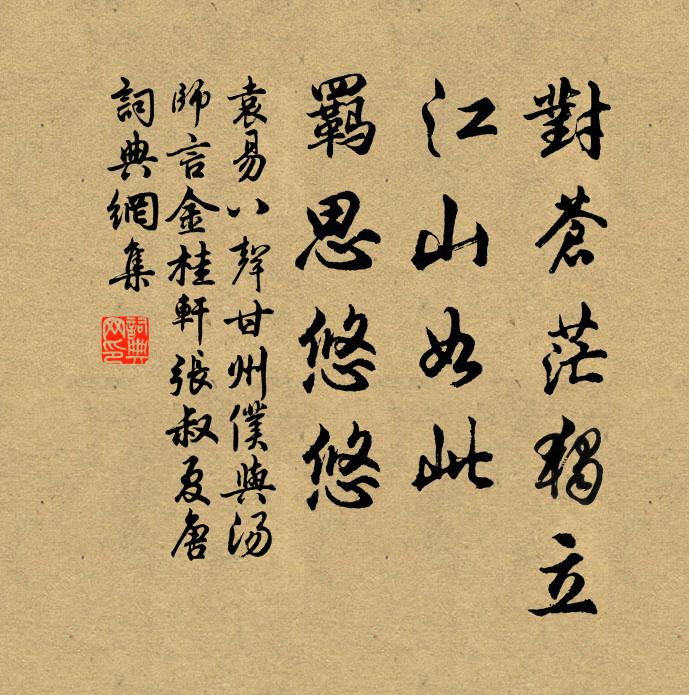 對蒼茫獨立
江山如此
羈思悠悠
袁易八聲甘州僕與湯
師言金桂軒張叔夏唐
詞典網集
詞典網印